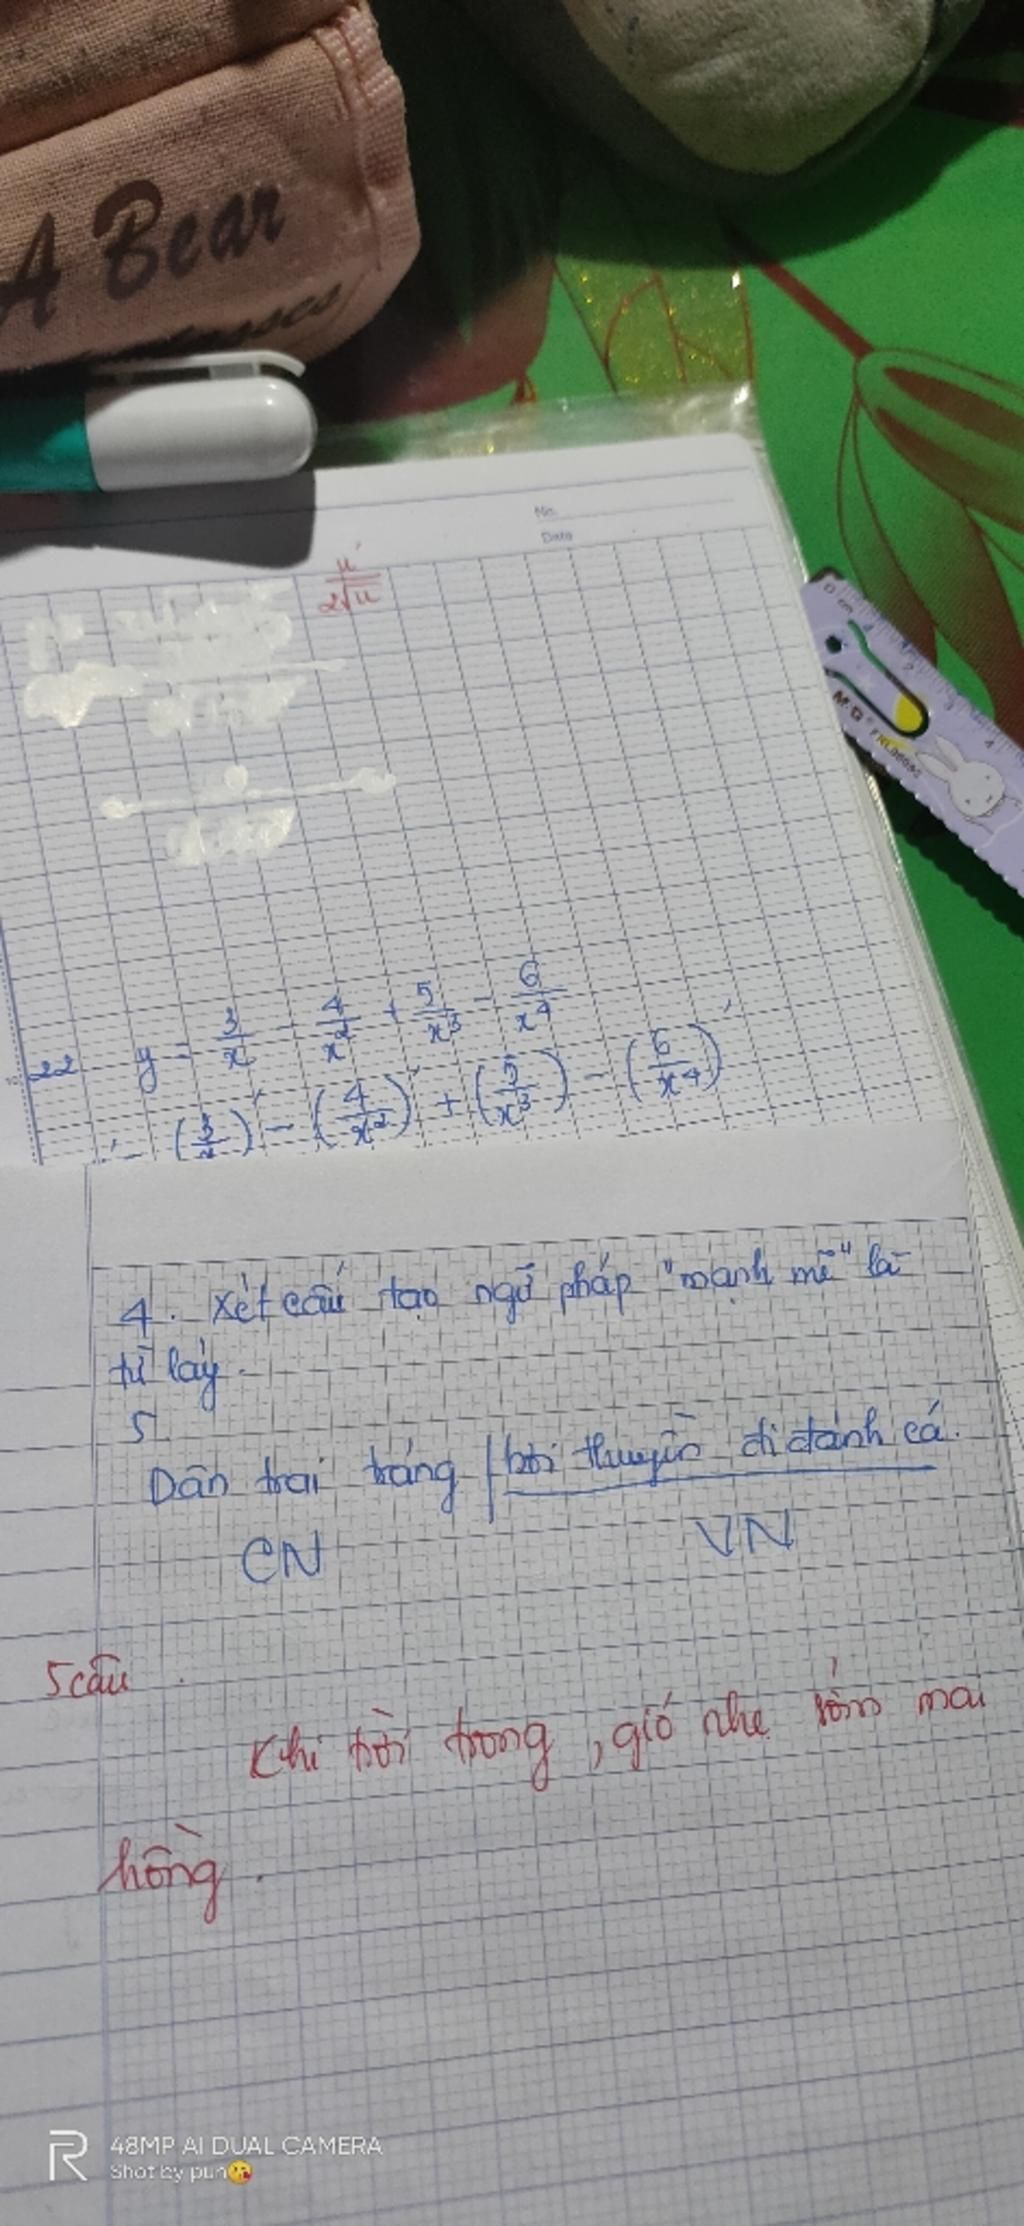 A Bear
No.
Date
u'
2√u
22 y = 3/x - 4/x² + 5/x³ - 6/x⁴
' = (3/x)' - (4/x²)' + (5/x³) - (6/x⁴)'
4. Xét cấu tạo ngữ pháp "mạnh mẽ" là
từ láy.
5.
Dân trai tráng | bơi thuyền đi đánh cá.
CN VN
5 câu
Khi trời trong, gió nhẹ sớm mai
hồng.
0 cm 1 2 3 4
48MP AI DUAL CAMERA
Shot by pun😘